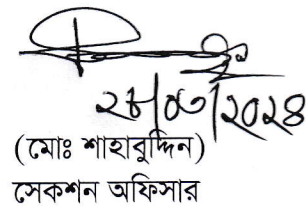 ২৮/০৩/২০২৪
(মোঃ শাহাবুদ্দিন)
সেকশন অফিসার